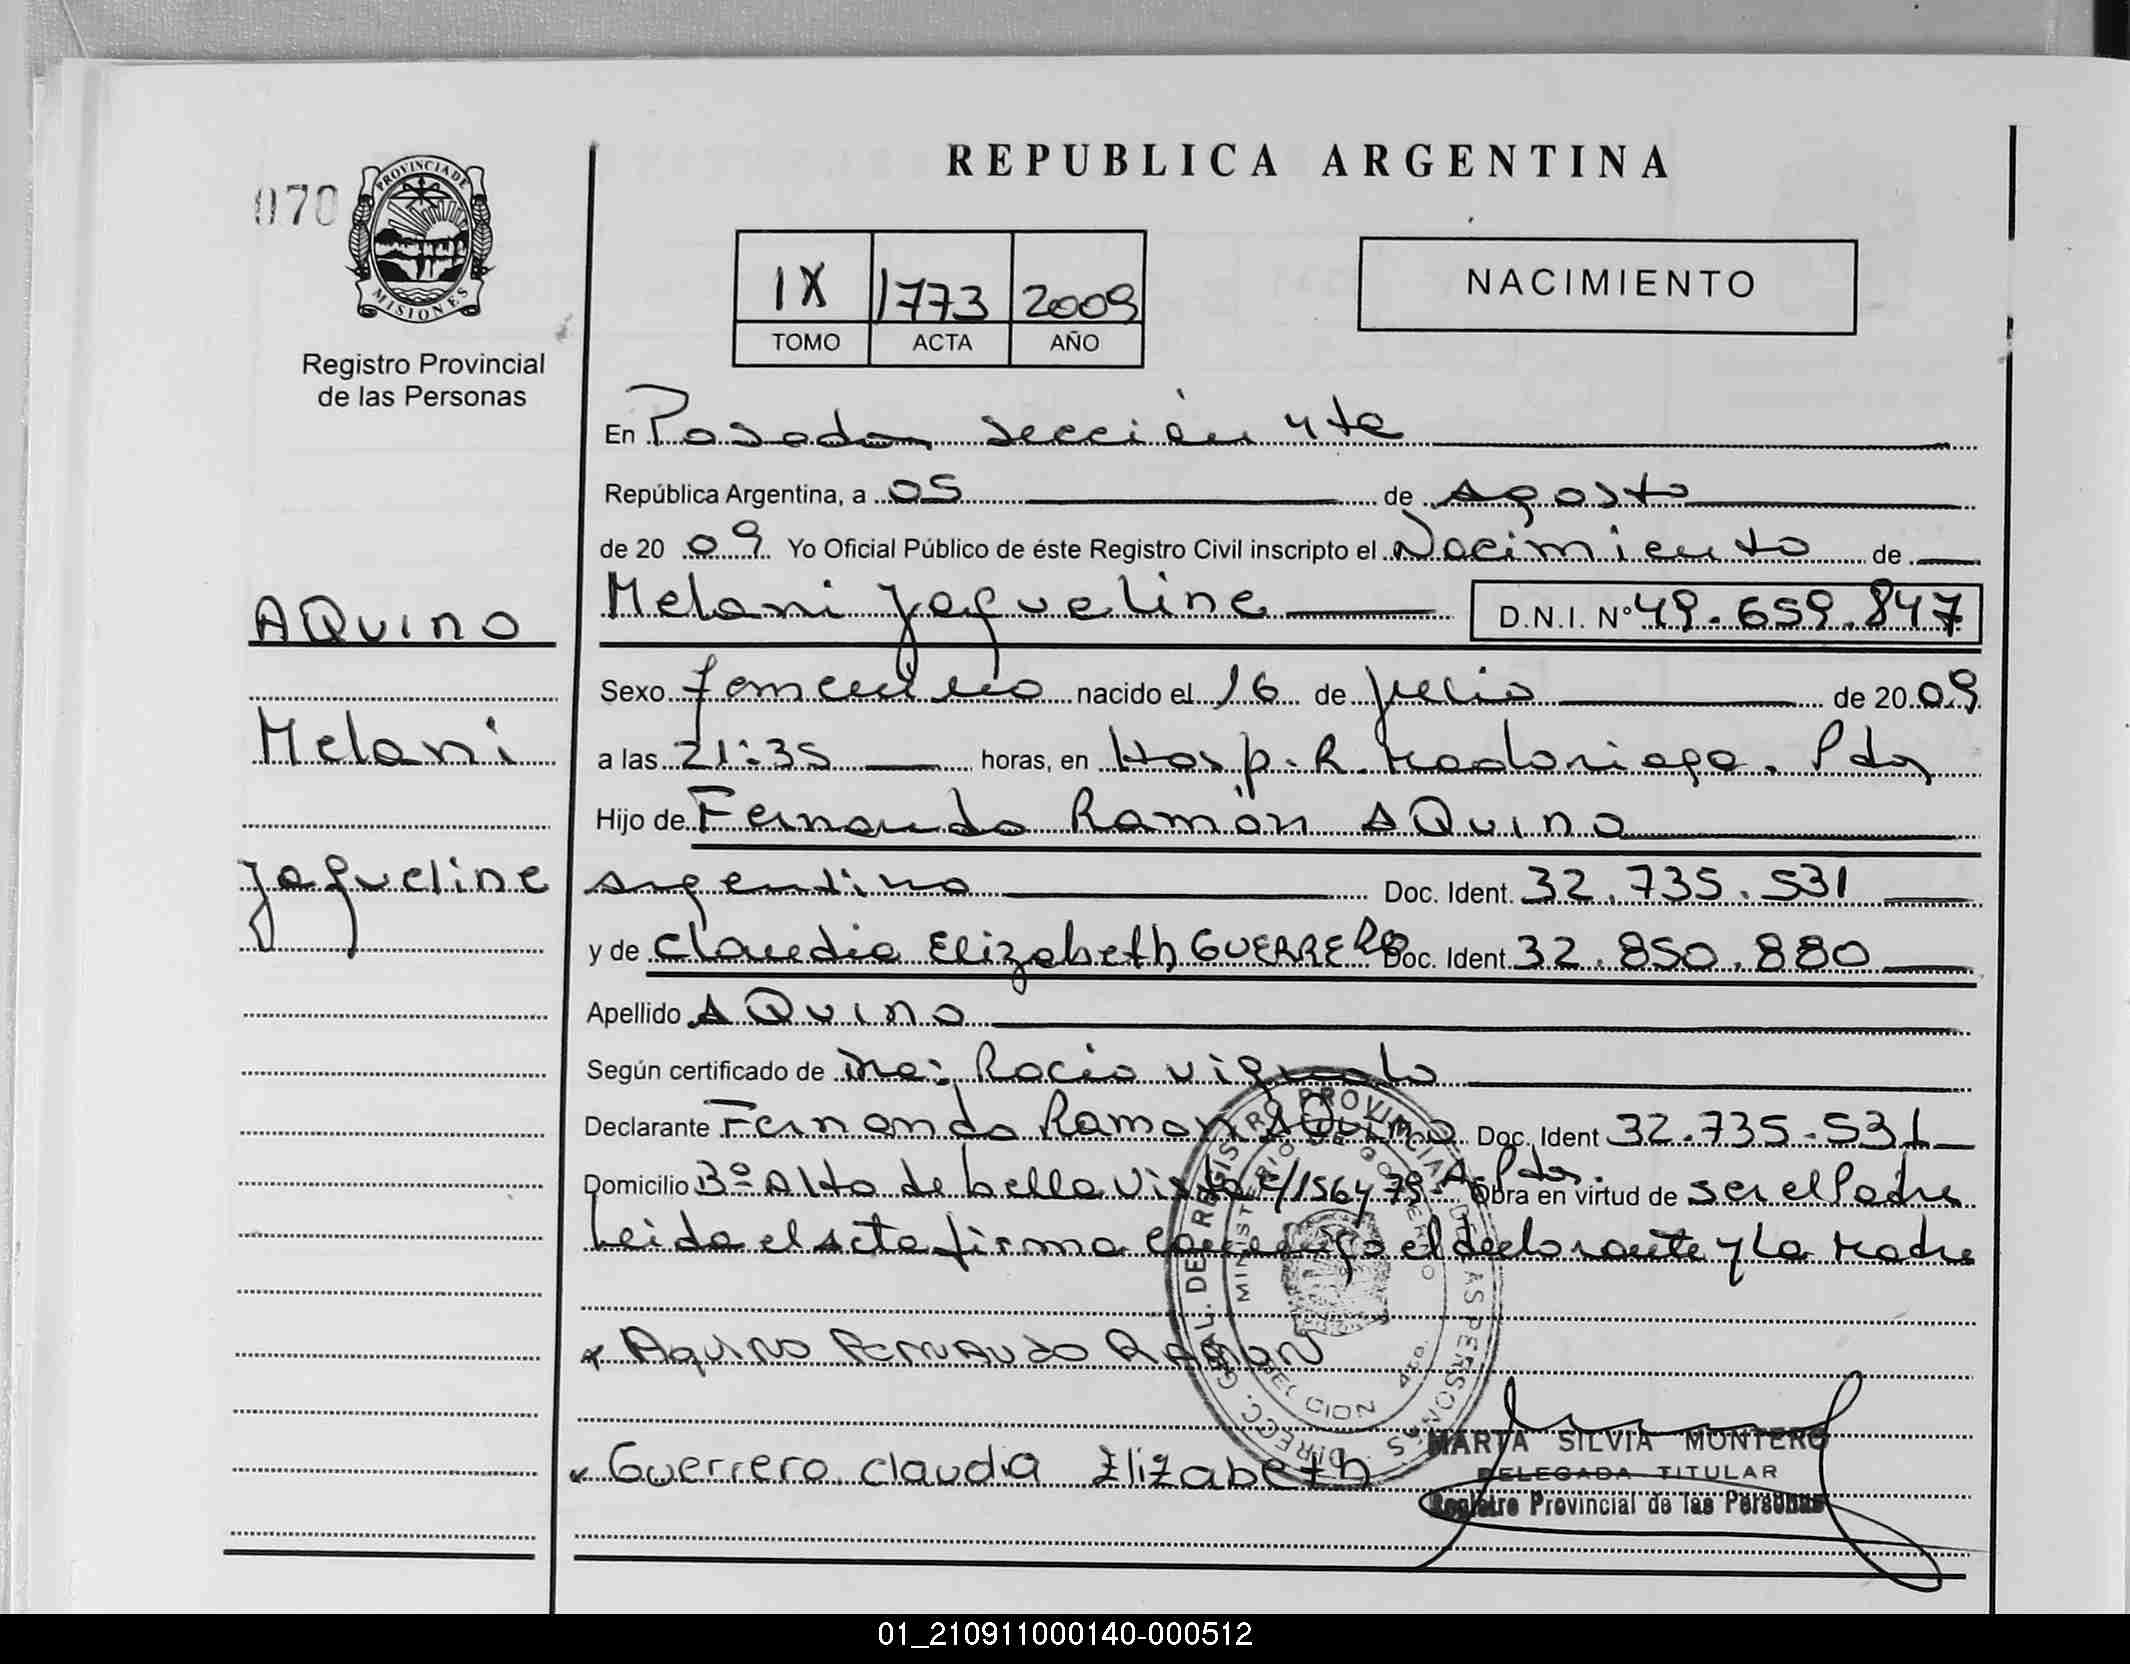 REPUBLICA ARGENTINA
070
PROVINCIA DE
MISIONES
Registro Provincial
de las Personas
IX 1773 2009
TOMO ACTA AÑO
NACIMIENTO
En Posadas sección 4ta
República Argentina, a 05 de Agosto
de 2009 Yo Oficial Público de éste Registro Civil inscripto el Nacimiento de
AQuino
Melani Jaqueline D.N.I. Nº 49.659.847
Sexo femenino nacido el 16 de Julio de 2009
Melani
a las 21:35 horas, en Hosp. R. Madariaga. Pdas
Hijo de Fernando Ramón AQuino
Jaqueline
Argentino Doc. Ident. 32.735.531
y de Claudia Elizabeth GUERRERO Doc. Ident. 32.850.880
Apellido AQuino
Según certificado de Rocío
Declarante Fernando Ramon AQuino Doc. Ident 32.735.531
Domicilio Bº Alto de bella Vista c/156 Pdas. Obra en virtud de ser el Padre
Leida el acta firma conmigo el declarante y la Madre
Aquino Fernando Ramon
Guerrero claudia Elizabeth
DIRECC. GRAL. DE REGISTRO PROVINCIAL DE LAS PERSONAS
MINISTERIO DE GOBIERNO
MARTA SILVIA MONTERO
DELEGADA TITULAR
Registro Provincial de las Personas
01_210911000140-000512